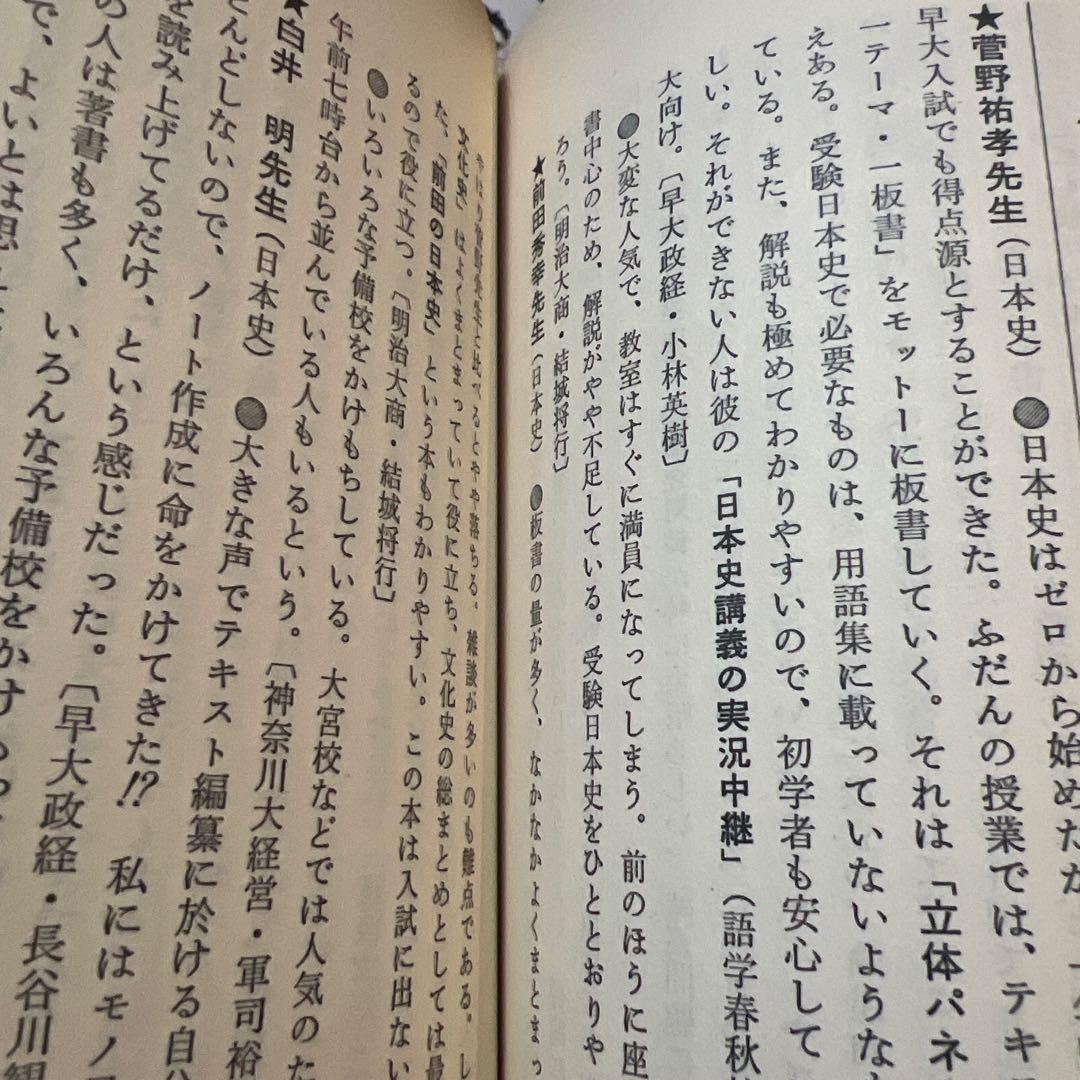 ★菅野祐孝先生（日本史）　●日本史はゼロから始めたが、
早大入試でも得点源とすることができた。ふだんの授業では、テキ
一テーマ・一板書」をモットーに板書していく。それは「立体パネ
えある。受験日本史で必要なものは、用語集に載っていないような
ている。また、解説も極めてわかりやすいので、初学者も安心して
しい。それができない人は彼の「日本史講義の実況中継」（語学春秋
大向け。〔早大政経・小林英樹〕
●大変な人気で、教室はすぐに満員になってしまう。前のほうに座
書中心のため、解説がやや不足している。受験日本史をひととおりや
ろう。〔明治大商・結城将行〕
★前田秀幸先生（日本史）　●板書の量が多く、なかなかよくまとまっ
に比べるとやや落ちる。雑談が多いのも難点である。し
文化史」はよくまとまっていて役に立ち、文化史の総まとめとしては最
た、「前田の日本史」という本もわかりやすい。この本は入試に出ない
るので役に立つ。〔明治大商・結城将行〕
●いろいろな予備校をかけもちしている。大宮校などでは人気のた
午前七時台から並んでいる人もいるという。〔神奈川大経営・軍司裕
★白井　明先生（日本史）　●大きな声でテキスト編纂に於ける自
とんどしないので、ノート作成に命をかけてきた!?　私にはモノ
を読み上げてるだけ、という感じだった。〔早大政経・長谷川
の人は著書も多く、いろんな予備校をかけ
で、よいとは思